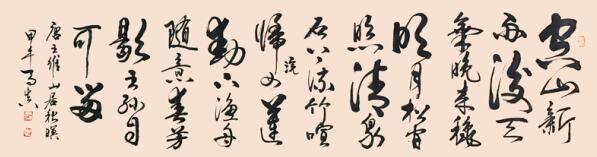 空山新
雨後天
氣晚来秋
明月松間
照清泉
石上流竹喧
歸浣女蓮
動下漁舟
随意春芳
歇王孫自
可留
唐王維山居秋暝
甲午